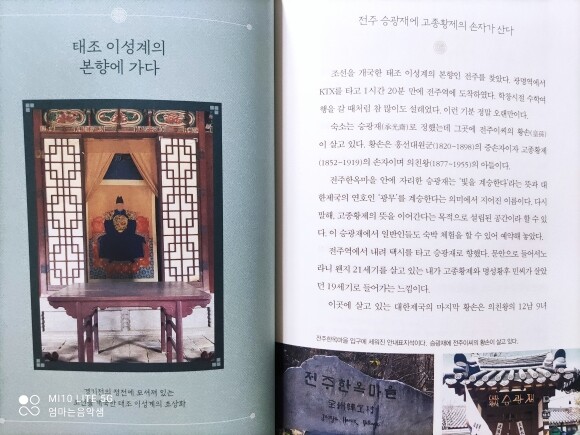 태조 이성계의
본향에 가다
경기전의 정전에 모셔져 있는
조선을 개국한 태조 이성계의 초상화
MI 10 LITE 5G
엄마는음악샘
전주 승광재에 고종황제의 손자가 산다
조선을 개국한 태조 이성계의 본향인 전주를 찾았다. 광명역에서
KTX를 타고 1시간 20분 만에 전주역에 도착하였다. 학창시절 수학여
행을 갈 때처럼 참 많이도 설레었다. 이런 기분 정말 오랜만이다.
숙소는 승광재(承光齋)로 정했는데 그곳에 전주이씨의 황손(皇孫)
이 살고 있다. 황손은 흥선대원군(1820~1898)의 증손자이자 고종황제
(1852~1919)의 손자이며 의친왕(1877~1955)의 아들이다.
전주한옥마을 안에 자리한 승광재는 '빛을 계승한다'라는 뜻과 대
한제국의 연호인 '광무'를 계승한다는 의미에서 지어진 이름이다. 다시
말해, 고종황제의 뜻을 이어간다는 목적으로 설립된 공간이라 할 수 있
다. 이 승광재에서 일반인들도 숙박 체험을 할 수 있어 예약해 놓았다.
전주역에서 내려 택시를 타고 승광재로 향했다. 문안으로 들어서노
라니 왠지 21세기를 살고 있는 내가 고종황제와 명성황후 민씨가 살았
던 19세기로 들어가는 느낌이다.
이곳에 살고 있는 대한제국의 마지막 황손은 의친왕의 12남 9녀
전주한옥마을 입구에 세워진 안내표지석이다. 승광재에 전주이씨의 황손이 살고 있다.
전주한옥마을